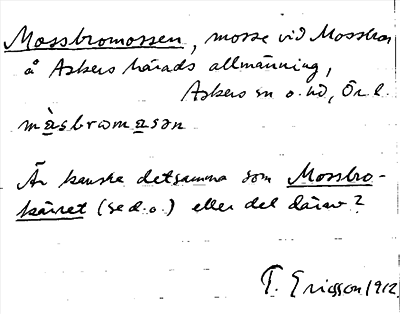 Mossbromossen, mosse vid Mossbron
å Askers härads allmänning,
Askers sn o. hd, Ör. l.
màsbromasən
Är kanske detsamma som Mossbro-
kärret (se d.o.) eller del därav?
T. Ericsson 1912